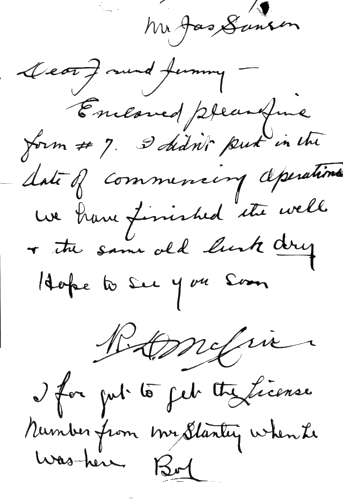 Mr Jas Sansen
Dear Friend Jimmy —
Enclosed please find
form # 7. I didn't put in the
date of commencing operations
we have finished the well
& the same old luck dry
Hope to see you soon
R.
I for got to get the License
Number from Mr Stanley when he
was here Bob